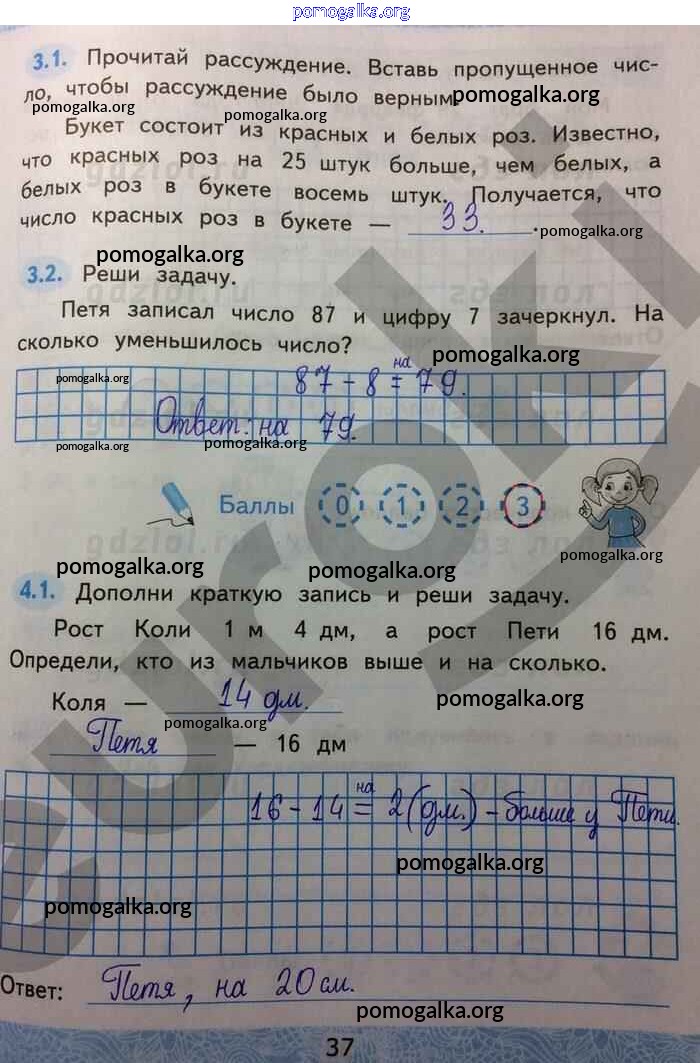 pomogalka.org
3.1. Прочитай рассуждение. Вставь пропущенное чис-
ло, чтобы рассуждение было верным.
pomogalka.org
pomogalka.org
pomogalka.org
Букет состоит из красных и белых роз. Известно,
что красных роз на 25 штук больше, чем белых, а
белых роз в букете восемь штук. Получается, что
число красных роз в букете — 33.
pomogalka.org
pomogalka.org
3.2. Реши задачу.
Петя записал число 87 и цифру 7 зачеркнул. На
сколько уменьшилось число?
pomogalka.org
pomogalka.org
87 - 8 = на 79.
Ответ: на 79.
pomogalka.org
pomogalka.org
Баллы 0 1 2 3
pomogalka.org
pomogalka.org
pomogalka.org
4.1. Дополни краткую запись и реши задачу.
Рост Коли 1 м 4 дм, а рост Пети 16 дм.
Определи, кто из мальчиков выше и на сколько.
Коля — 14 дм.
pomogalka.org
pomogalka.org
Петя — 16 дм
16 - 14 = на 2 (дм.) - больше у Пети.
pomogalka.org
pomogalka.org
Ответ: Петя, на 20 см.
pomogalka.org
37